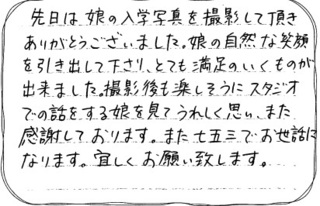 先日は、娘の入学写真を撮影して頂き
ありがとうございました。娘の自然な笑顔
を引き出して下さり、とても満足のいくものが
出来ました。撮影後も楽しそうにスタジオ
での話をする娘を見てうれしく思い、また
感謝しております。また七五三でお世話に
なります。宜しくお願い致します。